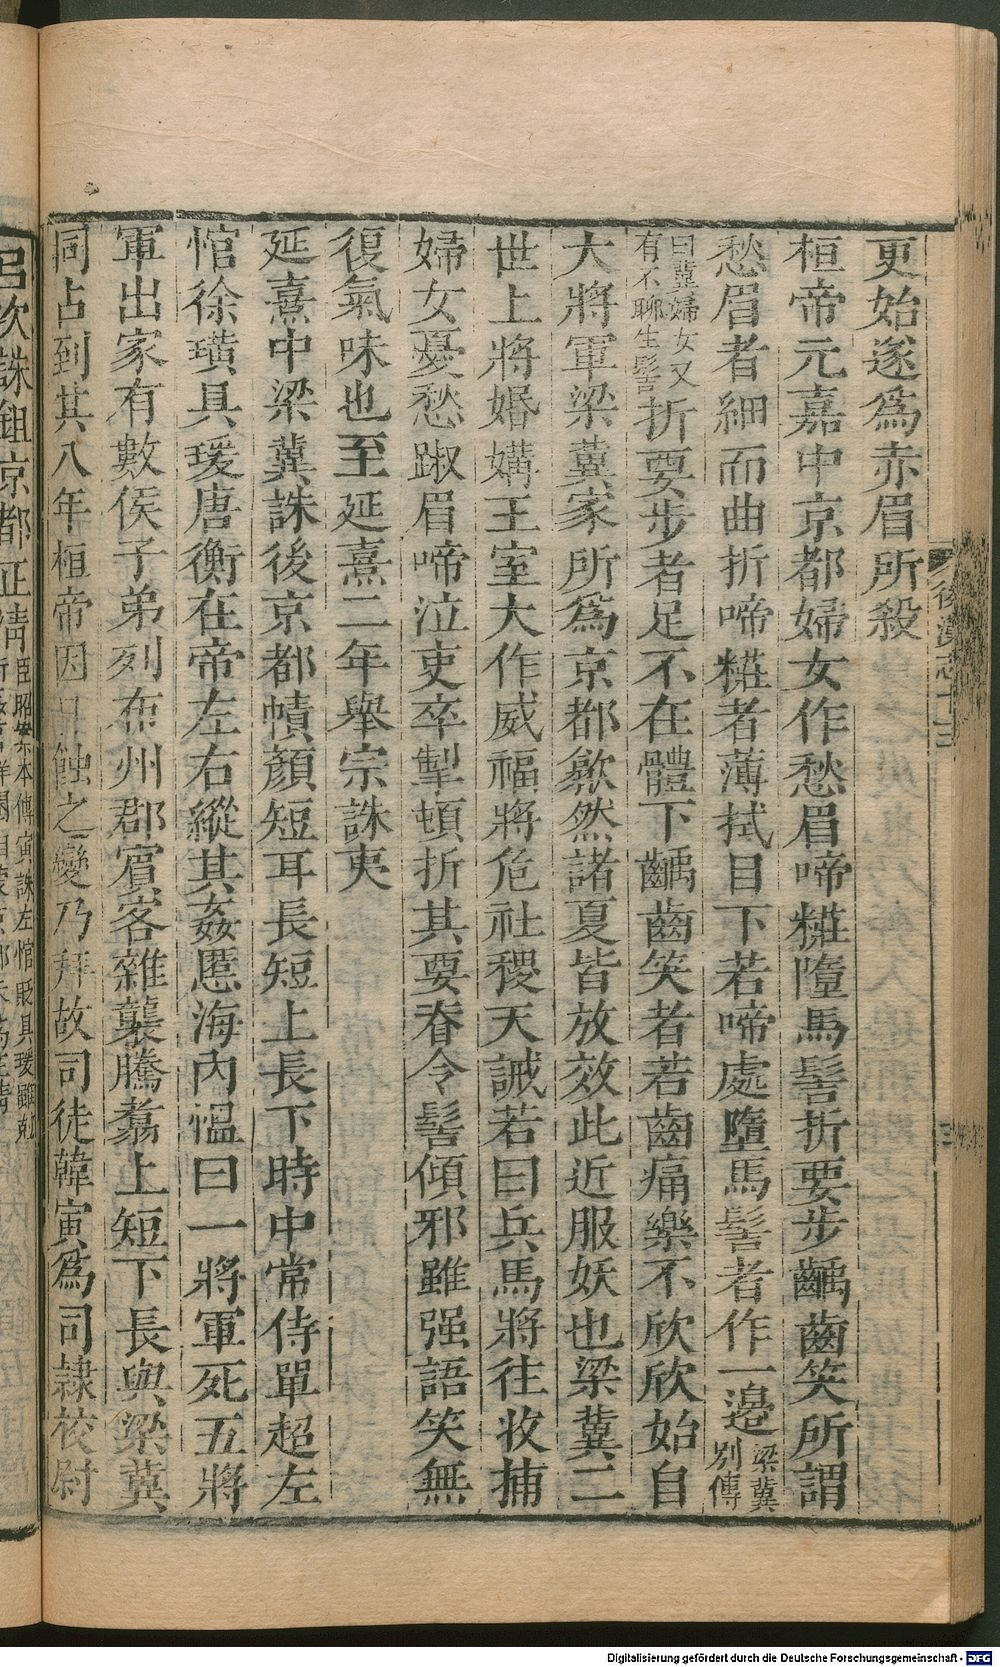 更始遂爲赤眉所殺
桓帝元嘉中京都婦女作愁眉啼糚墮馬髻折要步齲齒笑所謂
愁眉者細而曲折啼糚者薄拭目下若啼處墮馬髻者作一邉梁冀別傳
曰冀婦女又有不聊生髻折要步者足不在體下齲齒笑者若齒痛樂不欣欣始自
大將軍梁冀家所爲京都歙然諸夏皆放效此近服妖也梁冀二
世上將婚媾王室大作威福將危社稷天誡若曰兵馬將往收捕
婦女憂愁踧眉啼泣吏卒掣頓折其要脊令髻傾邪雖强語笑無
復氣味也至延熹二年舉宗誅夷
延熹中梁冀誅後京都幘顏短耳長短上長下時中常侍單超左
悺徐璜具瑗唐衡在帝左右縱其姦慝海內慍曰一將軍死五將
軍出家有數侯子弟列布州郡賓客雜襲騰翥上短下長與梁冀
同占到其八年桓帝因日蝕之變乃拜故司徒韓寅爲司隷校尉
後漢志十三
三
以次誅鉏京都正清臣昭案本傳寅誅左悺貶具瑗雖剋
Digitalisierung gefördert durch die Deutsche Forschungsgemeinschaft - DFG